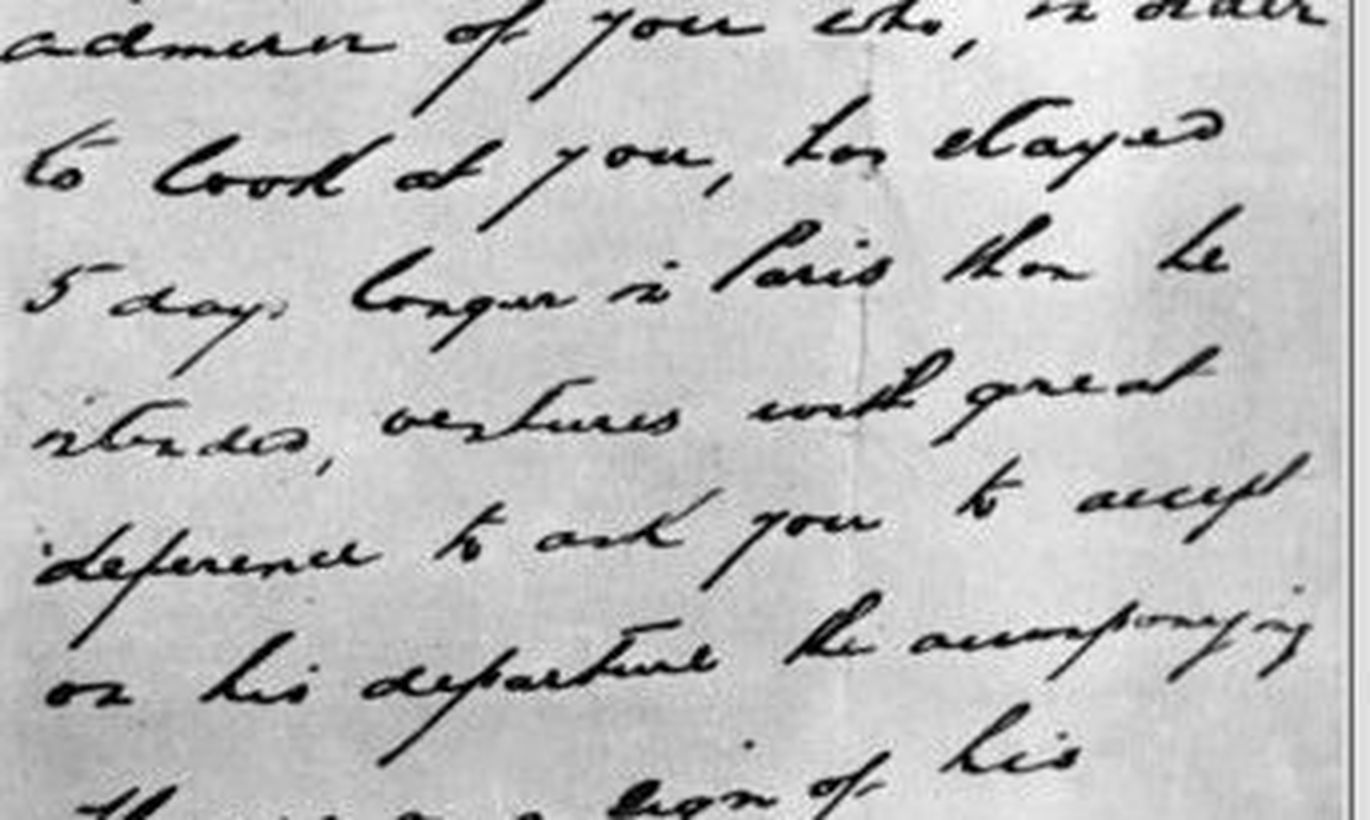 admirer of your who, in order
to look at you, has stayed
5 days longer in Paris than he
intended, ventures with great
deference to ask you to accept
on his departure the accompanying
sign of his